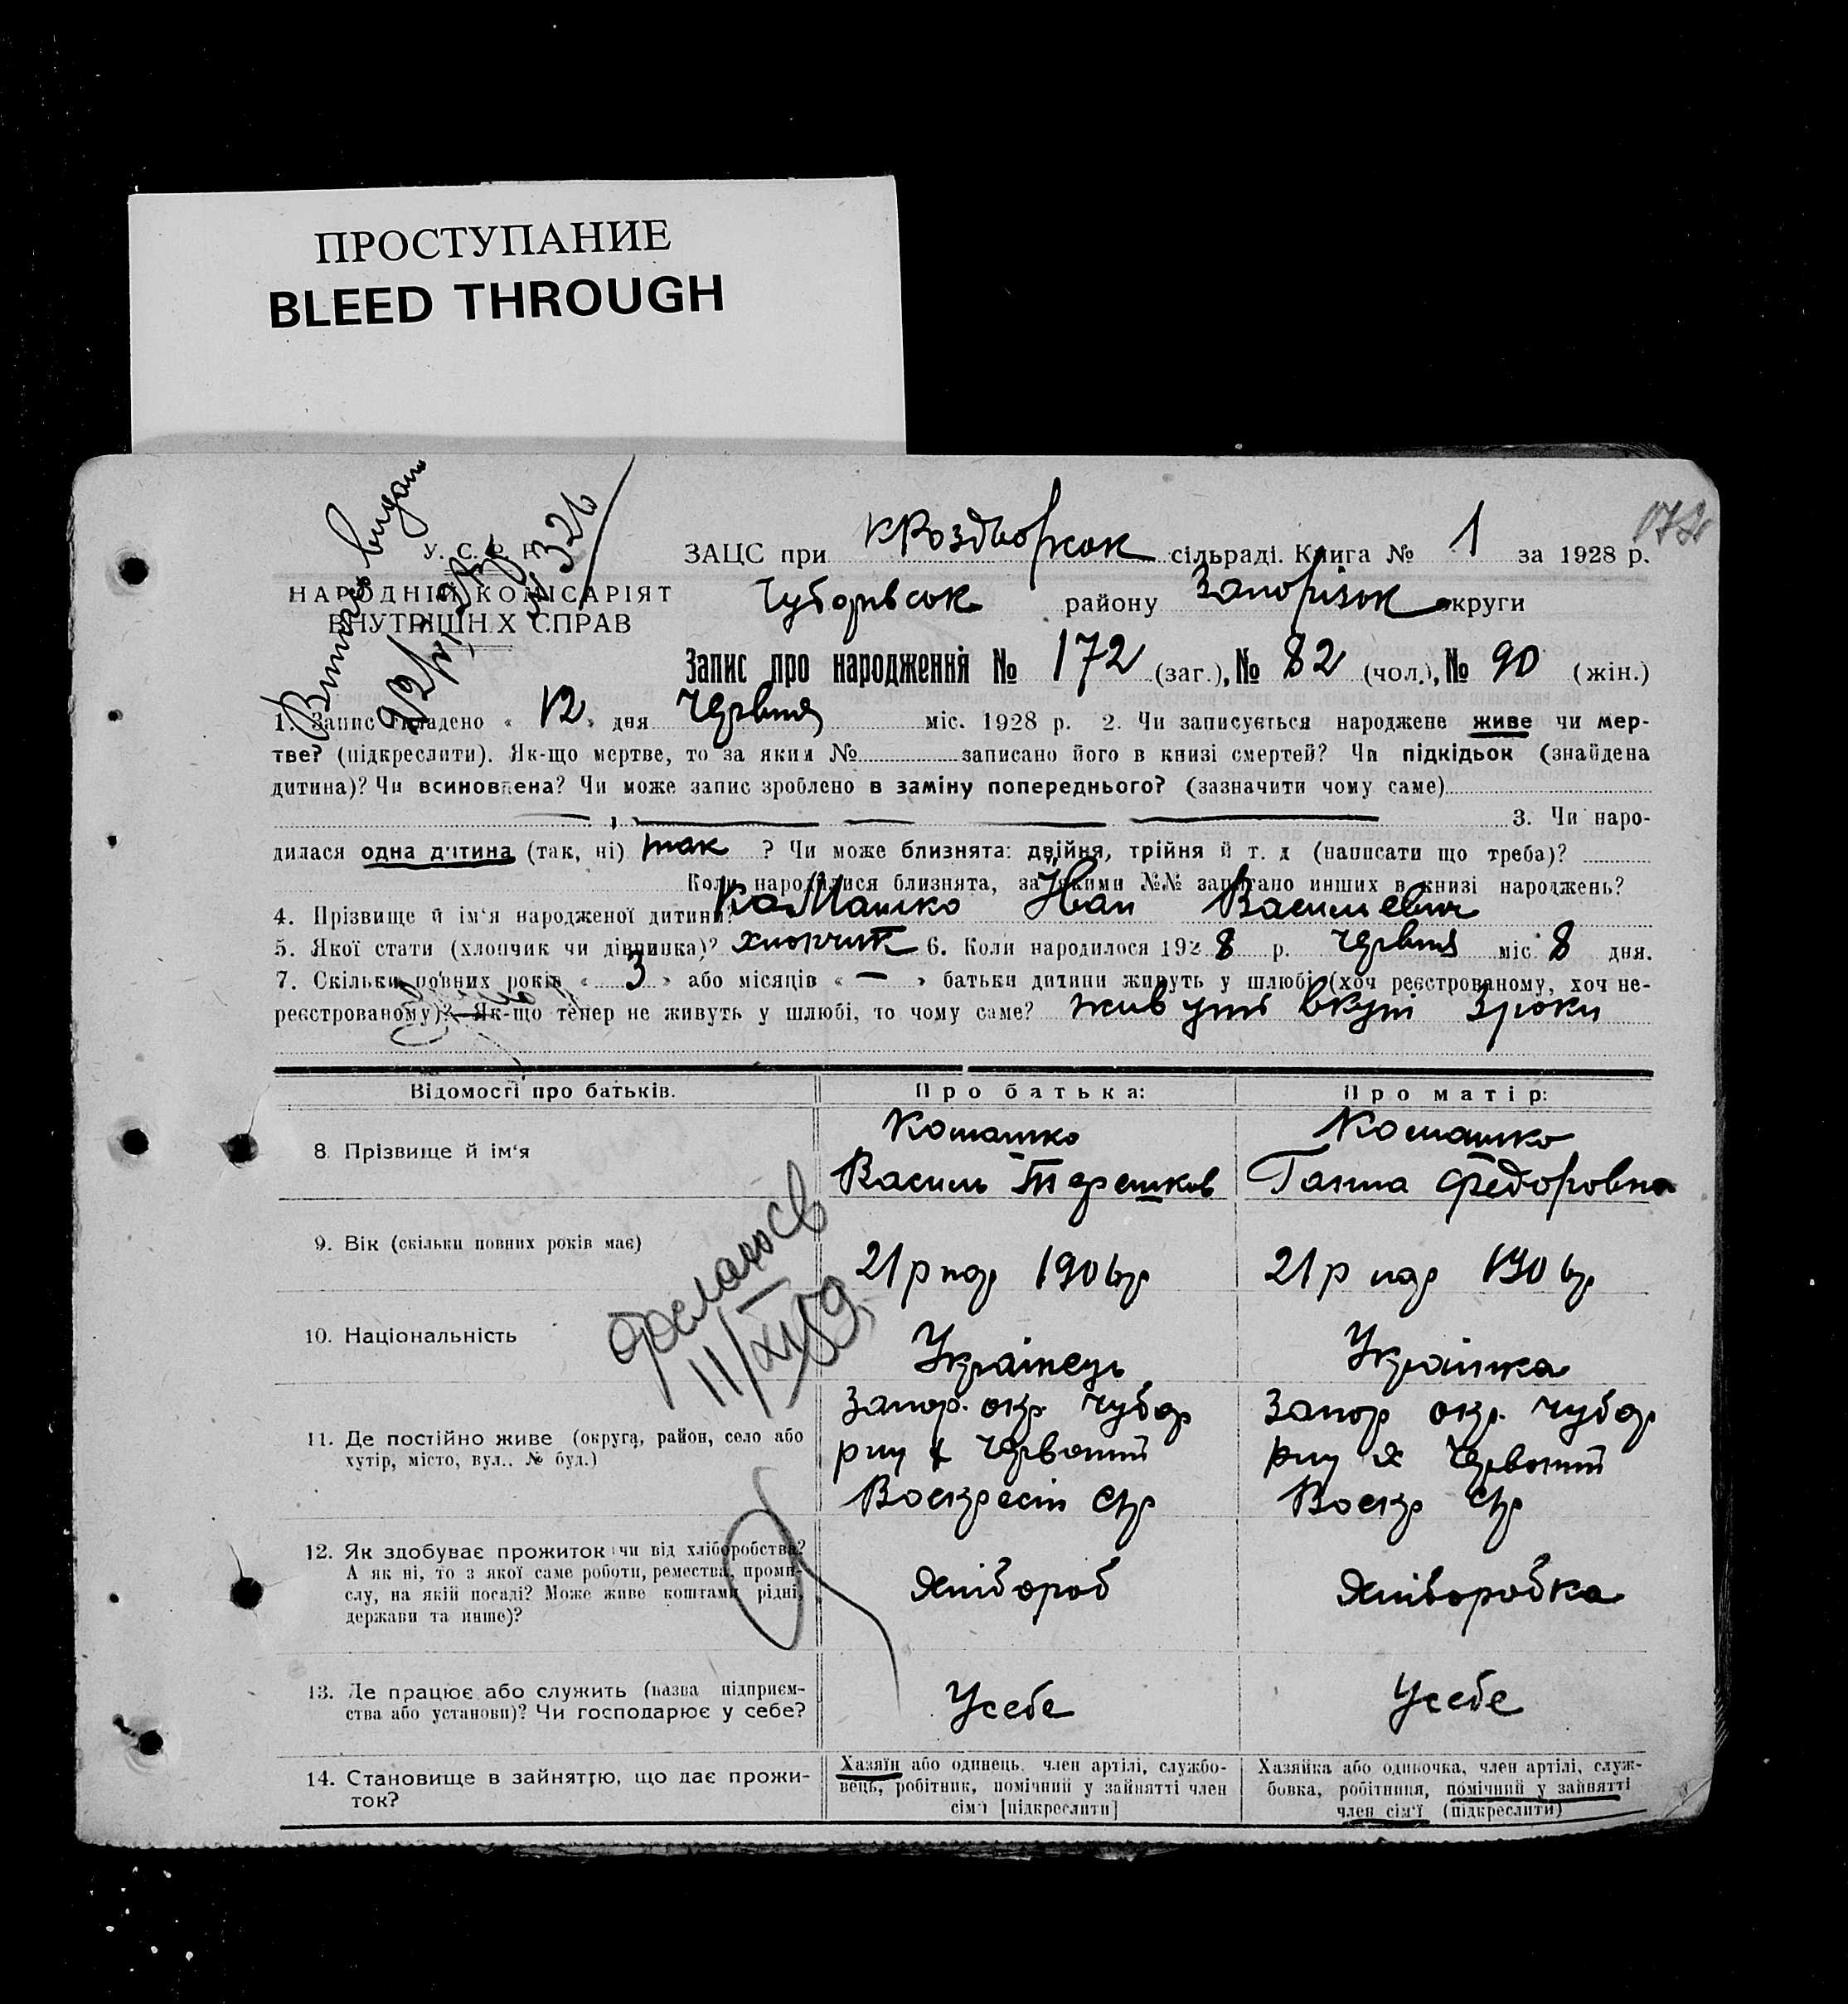 ПРОСТУПАНИЕ
BLEED THROUGH
172
У. С. Р. Р.
НАРОДНІЙ КОМІСАРІЯТ
ВНУТРІШНІХ СПРАВ
№ 326
ЗАЦС при сільраді. Книга № 1 за 1928 р.
Чубарівськ району Запорізьк округи
Запис про народження № 172 (заг.), № 82 (чол.), № 90 (жін.)
1. Запис складено « 12 » дня Червня міс. 1928 р. 2. Чи записується народжене живе чи мер-
тве? (підкреслити). Як-що мертве, то за яким № записано його в книзі смертей? Чи підкідьок (знайдена
дитина)? Чи всиновлена? Чи може запис зроблено в заміну попереднього? (зазначити чому саме)
3. Чи наро-
дилася одна дитина (так, ні) так ? Чи може близнята: двійня, трійня й т. д (написати що треба)?
Коли народилися близнята, за якими №№ записано инших в книзі народжень?
4. Прізвище й ім'я народженої дитини? Комашко Іван Васильевич
5. Якої стати (хлопчик чи дівчинка)? хлопчик 6. Коли народилося 1928 р. Червня міс 8 дня.
7. Скільки повних років « 3 » або місяців « — » батьки дитини живуть у шлюбі (хоч реєстрованому, хоч не-
реєстрованому)? Як-що тепер не живуть у шлюбі, то чому саме? живуть вкупі 3 роки
Відомості про батьків.
Про батька:
Про матір:
8. Прізвище й ім'я
Комашко
Василь Терешков
Комашко
Ганна Федоровна
9. Вік (скільки повних років має)
21 р нар 1906 р
21 р нар 1906 р
10. Національність
Українець
Українка
11. Де постійно живе (округа, район, село або
хутір, місто, вул.. № буд.)
Запор. окр. Чубар
рну х Червоний
Воскресен
Запор окр. Чубар
рну х Червоний
Воскр
12. Як здобуває прожиток: чи від хліборобства?
А як ні, то з якої саме роботи, ремества, проми-
слу, на якій посаді? Може живе коштами рідні,
держави та инше)?
Хлібороб
Хліборобка
13. Де працює або служить (назва підприєм-
ства або установи)? Чи господарює у себе?
Усебе
Усебе
14. Становище в зайняттю, що дає прожи-
ток?
Хазяїн або одинець, член артілі, службо-
вець, робітник, помічний у зайнятті член
сім'ї [підкреслити]
Хазяйка або одиночка, член артілі, служ-
бовка, робітниця, помічний у зайнятті
член сім'ї (підкреслити)